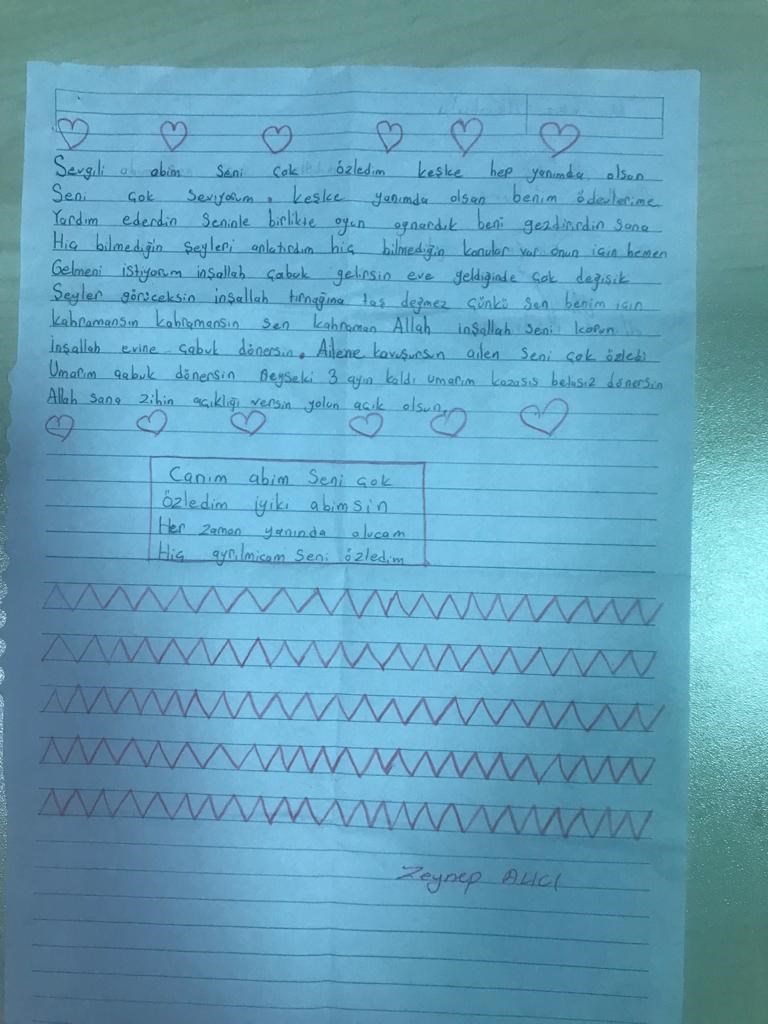 Sevgili abim seni çok özledim keşke hep yanımda olsan
Seni çok seviyorum. keşke yanımda olsan benim ödevlerime
Yardım ederdin Seninle birlikte oyun oynardık beni gezdirirdin sana
Hiç bilmediğin şeyleri anlatırdım hiç bilmediğin konular var onun için hemen
Gelmeni istiyorum inşallah çabuk gelirsin eve geldiğinde çok değişik
Şeyler görüceksin inşallah tırnağına taş değmez çünkü sen benim için
kahramansın kahramansın sen kahraman Allah inşallah seni korur
inşallah evine çabuk dönersin. Ailene kavuşursun ailen seni çok özledi
Umarım çabuk dönersin Neyseki 3 ayın kaldı umarım kazasıs belasız dönersin
Allah sana zihin açıklığı versin yolun açık olsun.
Canım abim Seni çok
özledim iyiki abimsin
Her zaman yanında olucam
Hiç ayrılmicam seni özledim
Zeynep ALICI